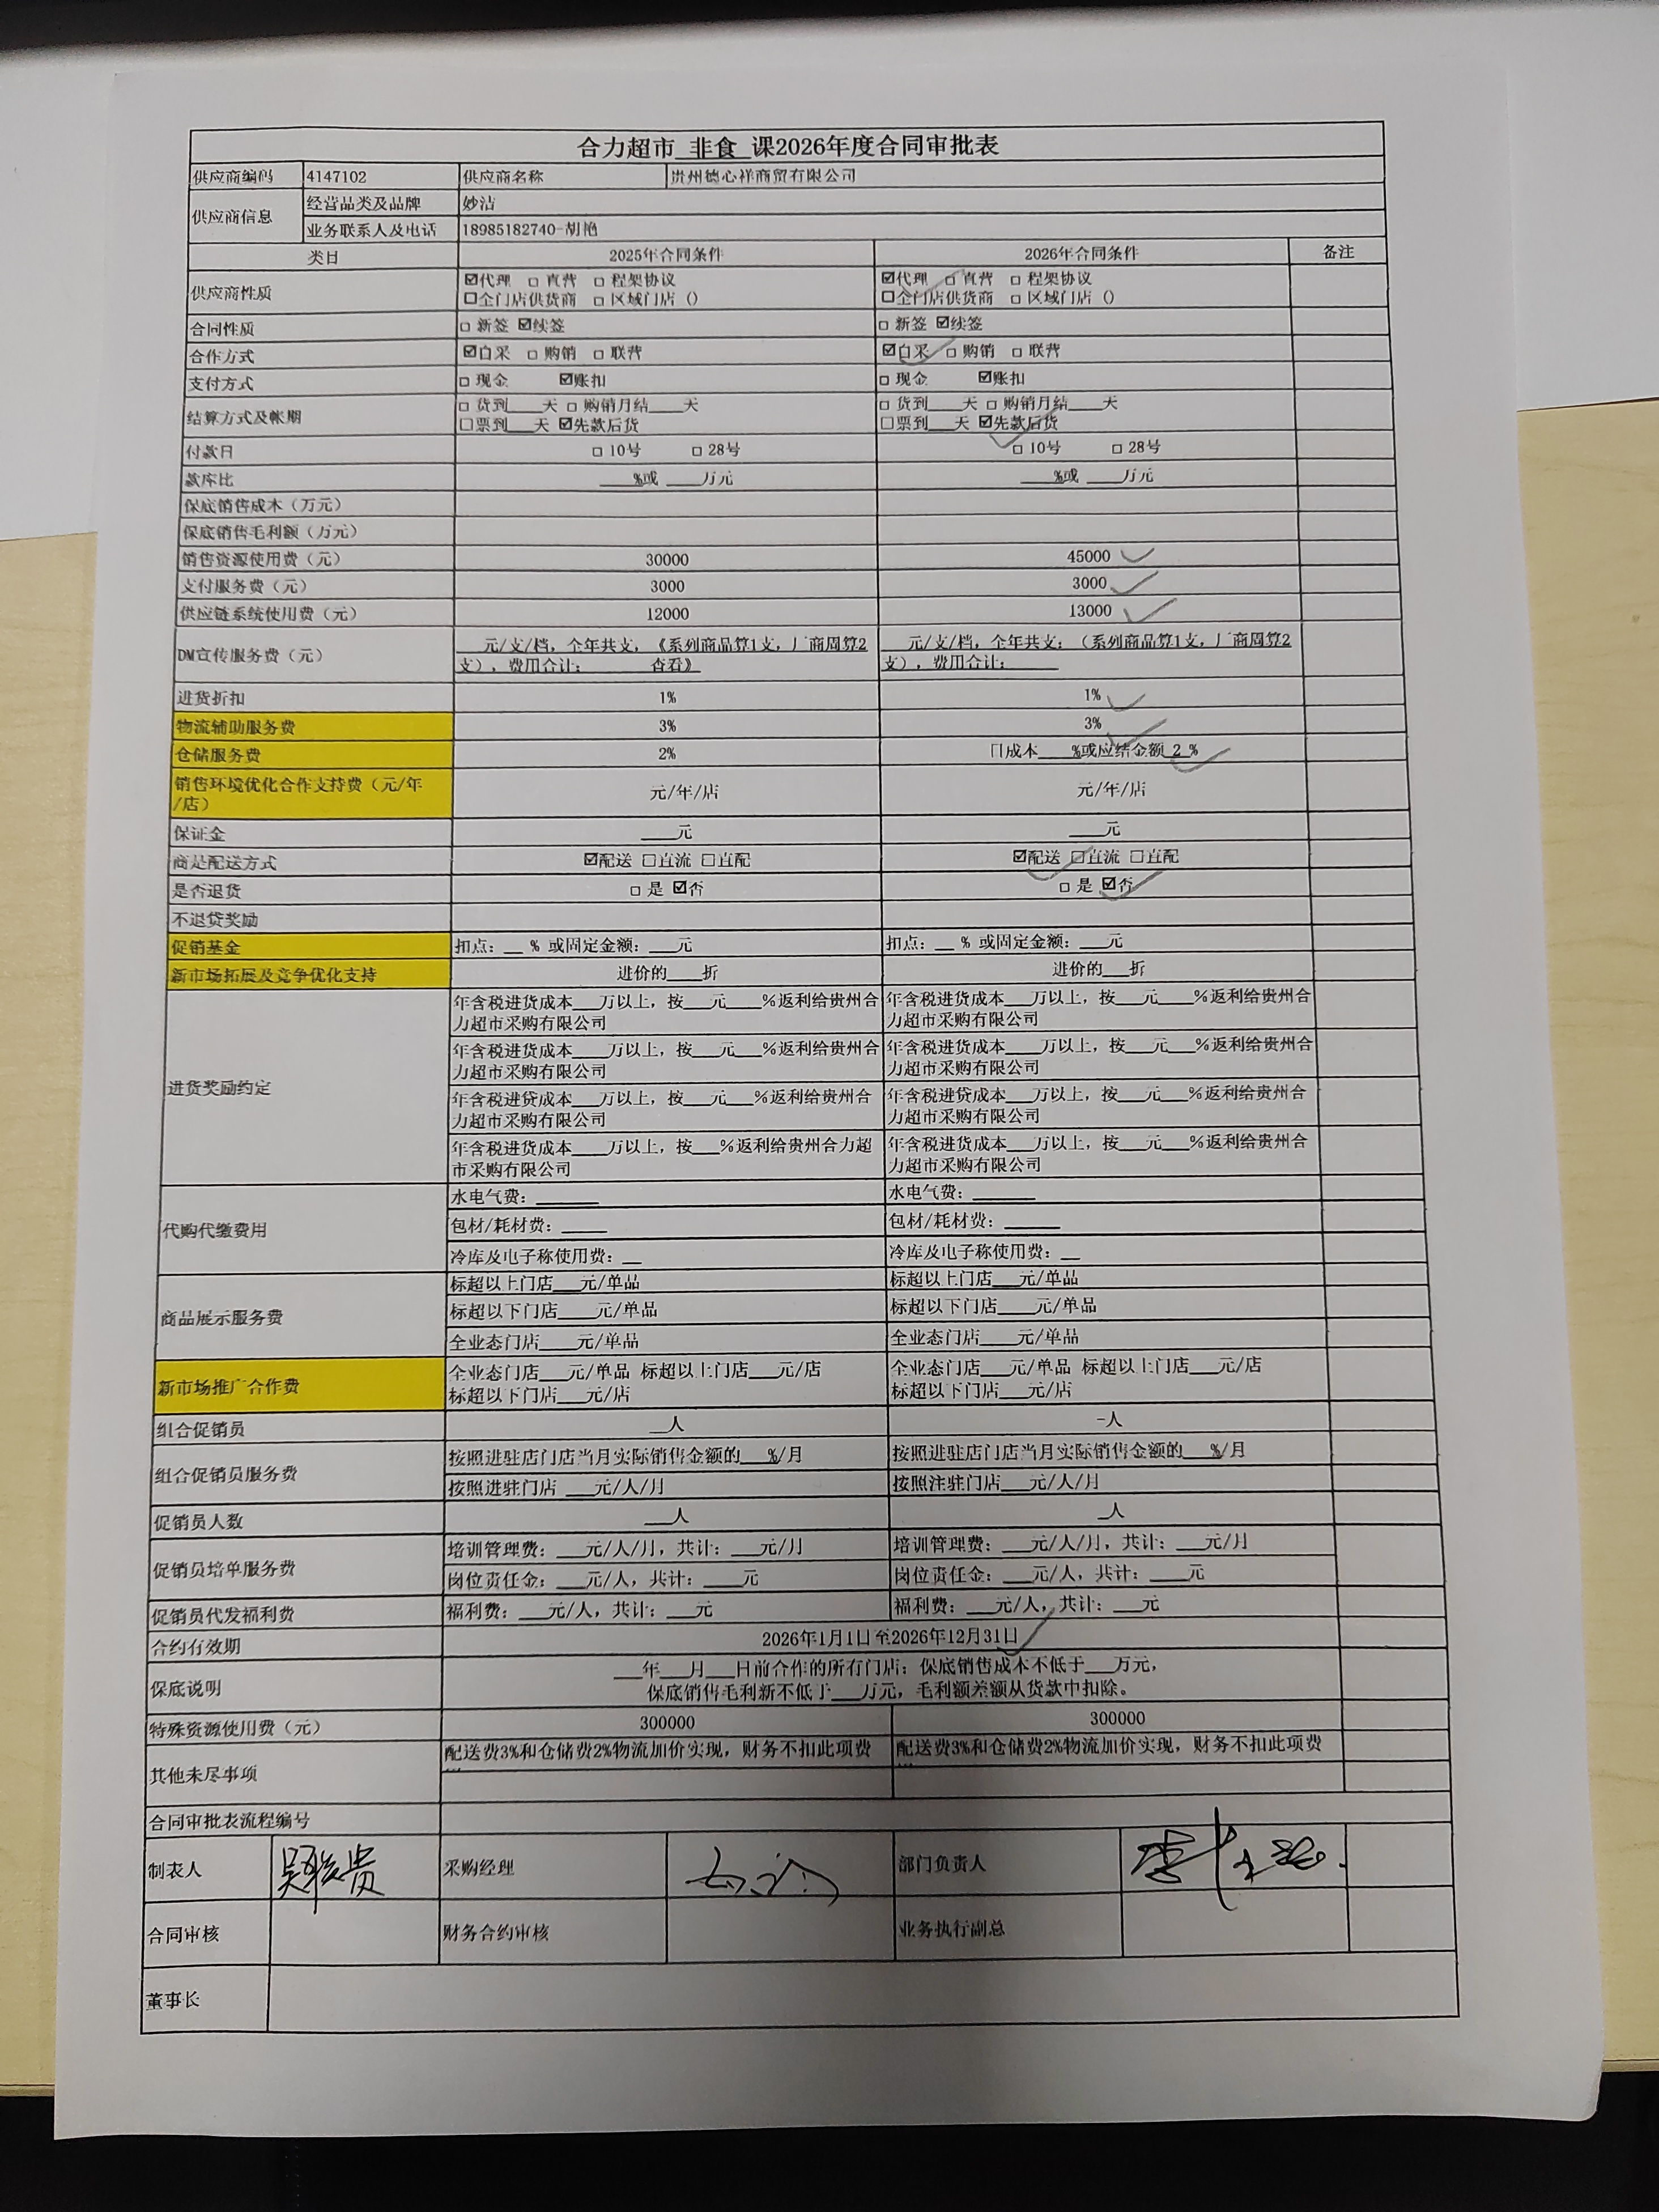 合力超市 非食 课2026年度合同审批表
供应商编码 4147102 供应商名称 贵州德心祥商贸有限公司
供应商信息 经营品类及品牌 妙洁
业务联系人及电话 18985182740-胡艳
类日 2025年合同条件 2026年合同条件 备注
供应商性质 ☑代理 □ 直营 □ 程架协议 ☑代理 □ 直营 □ 程架协议
□全门店供货商 □ 区域门店（） □全门店供货商 □ 区域门店（）
合同性质 □ 新签 ☑续签 □ 新签 ☑续签
合作方式 ☑白采 □ 购销 □ 联营 ☑白采 □ 购销 □ 联营
支付方式 □ 现金 ☑账扣 □ 现金 ☑账扣
结算方式及帐期 □ 货到___天 □ 购销月结___天 □ 货到___天 □ 购销月结___天
□票到___天 ☑先款后货 □票到___天 ☑先款后货
付款日 □ 10号 □ 28号 □ 10号 □ 28号
款库比 ___%或 ___万元 ___%或 ___万元
保底销售成本（万元）
保底销售毛利额（万元）
销售资源使用费（元） 30000 45000
支付服务费（元） 3000 3000
供应链系统使用费（元） 12000 13000
DM宣传服务费（元） ___元/支/档，全年共支，《系列商品算1支，厂商周算2 ___元/支/档，全年共支；（系列商品算1支，厂商周算2
支），费用合计：___查看》 支），费用合计：___
进货折扣 1% 1%
物流辅助服务费 3% 3%
仓储服务费 2% 口成本___%或应结金额 2 %
销售环境优化合作支持费（元/年 元/年/店 元/年/店
/店）
保证金 ___元 ___元
商是配送方式 ☑配送 □直流 □直配 ☑配送 □直流 □直配
是否退货 □ 是 ☑否 □ 是 ☑否
不退贷奖励
促销基金 扣点：__ % 或固定金额：___元 扣点：__ % 或固定金额：___元
新市场拓展及竞争优化支持 进价的___折 进价的___折
进货奖励约定 年含税进货成本___万以上，按___元___%返利给贵州合 年含税进货成本___万以上，按___元___%返利给贵州合
力超市采购有限公司 力超市采购有限公司
年含税进货成本___万以上，按___元___%返利给贵州合 年含税进货成本___万以上，按___元___%返利给贵州合
力超市采购有限公司 力超市采购有限公司
年含税进贷成本___万以上，按___元___%返利给贵州合 年含税进货成本___万以上，按___元___%返利给贵州合
力超市采购有限公司 力超市采购有限公司
年含税进货成本___万以上，按___%返利给贵州合力超 年含税进货成本___万以上，按___元___%返利给贵州合
市采购有限公司 力超市采购有限公司
代购代缴费用 水电气费：______ 水电气费：______
包材/耗材费：____ 包材/耗材费：____
冷库及电子称使用费：__ 冷库及电子称使用费：__
商品展示服务费 标超以上门店___元/单品 标超以上门店___元/单品
标超以下门店___元/单品 标超以下门店___元/单品
全业态门店___元/单品 全业态门店___元/单品
新市场推广合作费 全业态门店___元/单品 标超以上门店___元/店 全业态门店___元/单品 标超以上门店___元/店
标超以下门店___元/店 标超以下门店___元/店
组合促销员 __人 -人
组合促销员服务费 按照进驻店门店当月实际销售金额的___%/月 按照进驻店门店当月实际销售金额的___%/月
按照进驻门店 ___元/人/月 按照注驻门店___元/人/月
促销员人数 ___人 __人
促销员培单服务费 培训管理费：___元/人/月，共计：___元/月 培训管理费：___元/人/月，共计：___元/月
岗位责任金：___元/人，共计：____元 岗位责任金：___元/人，共计：____元
促销员代发福利费 福利费：___元/人，共计：___元 福利费：___元/人，共计：___元
合约有效期 2026年1月1日至2026年12月31日
保底说明 ___年___月___日前合作的所有门店：保底销售成本不低于___万元，
保底销售毛利新不低于___万元，毛利额差额从货款中扣除。
特殊资源使用费（元） 300000 300000
其他未尽事项 配送费3%和仓储费2%物流加价实现，财务不扣此项费 配送费3%和仓储费2%物流加价实现，财务不扣此项费
合同审批表流程编号
制表人 采购经理 部门负责人
合同审核 财务合约审核 业务执行副总
董事长